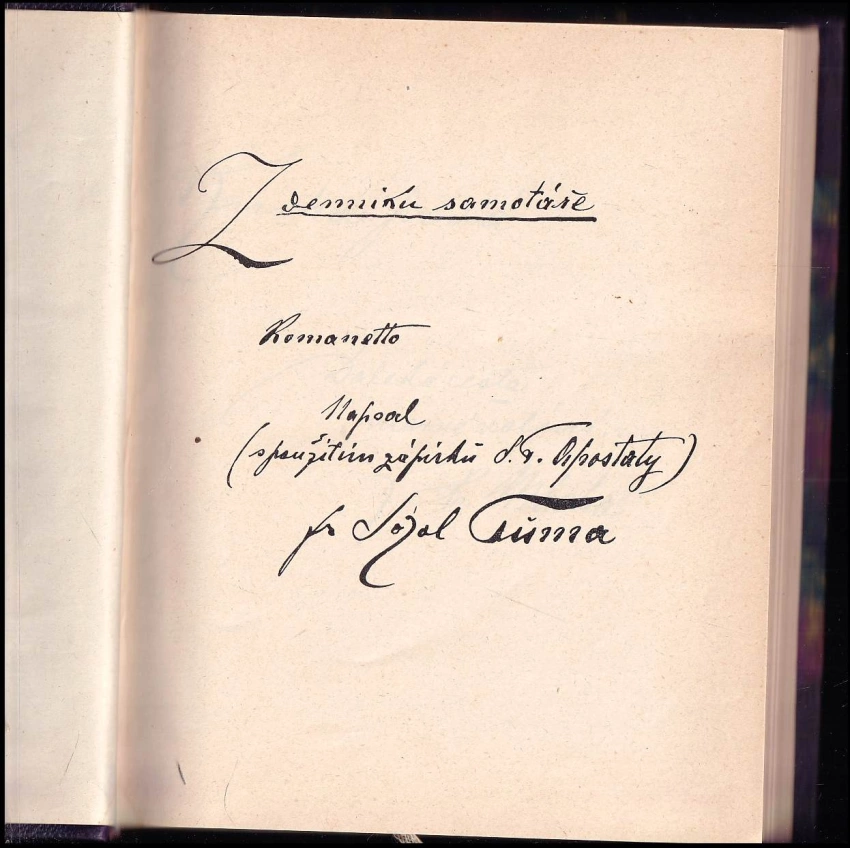 Z denníku samotáře
Romanetto
Napsal
(s použitím zápisků S. v. Apostaty)
fr Tůma